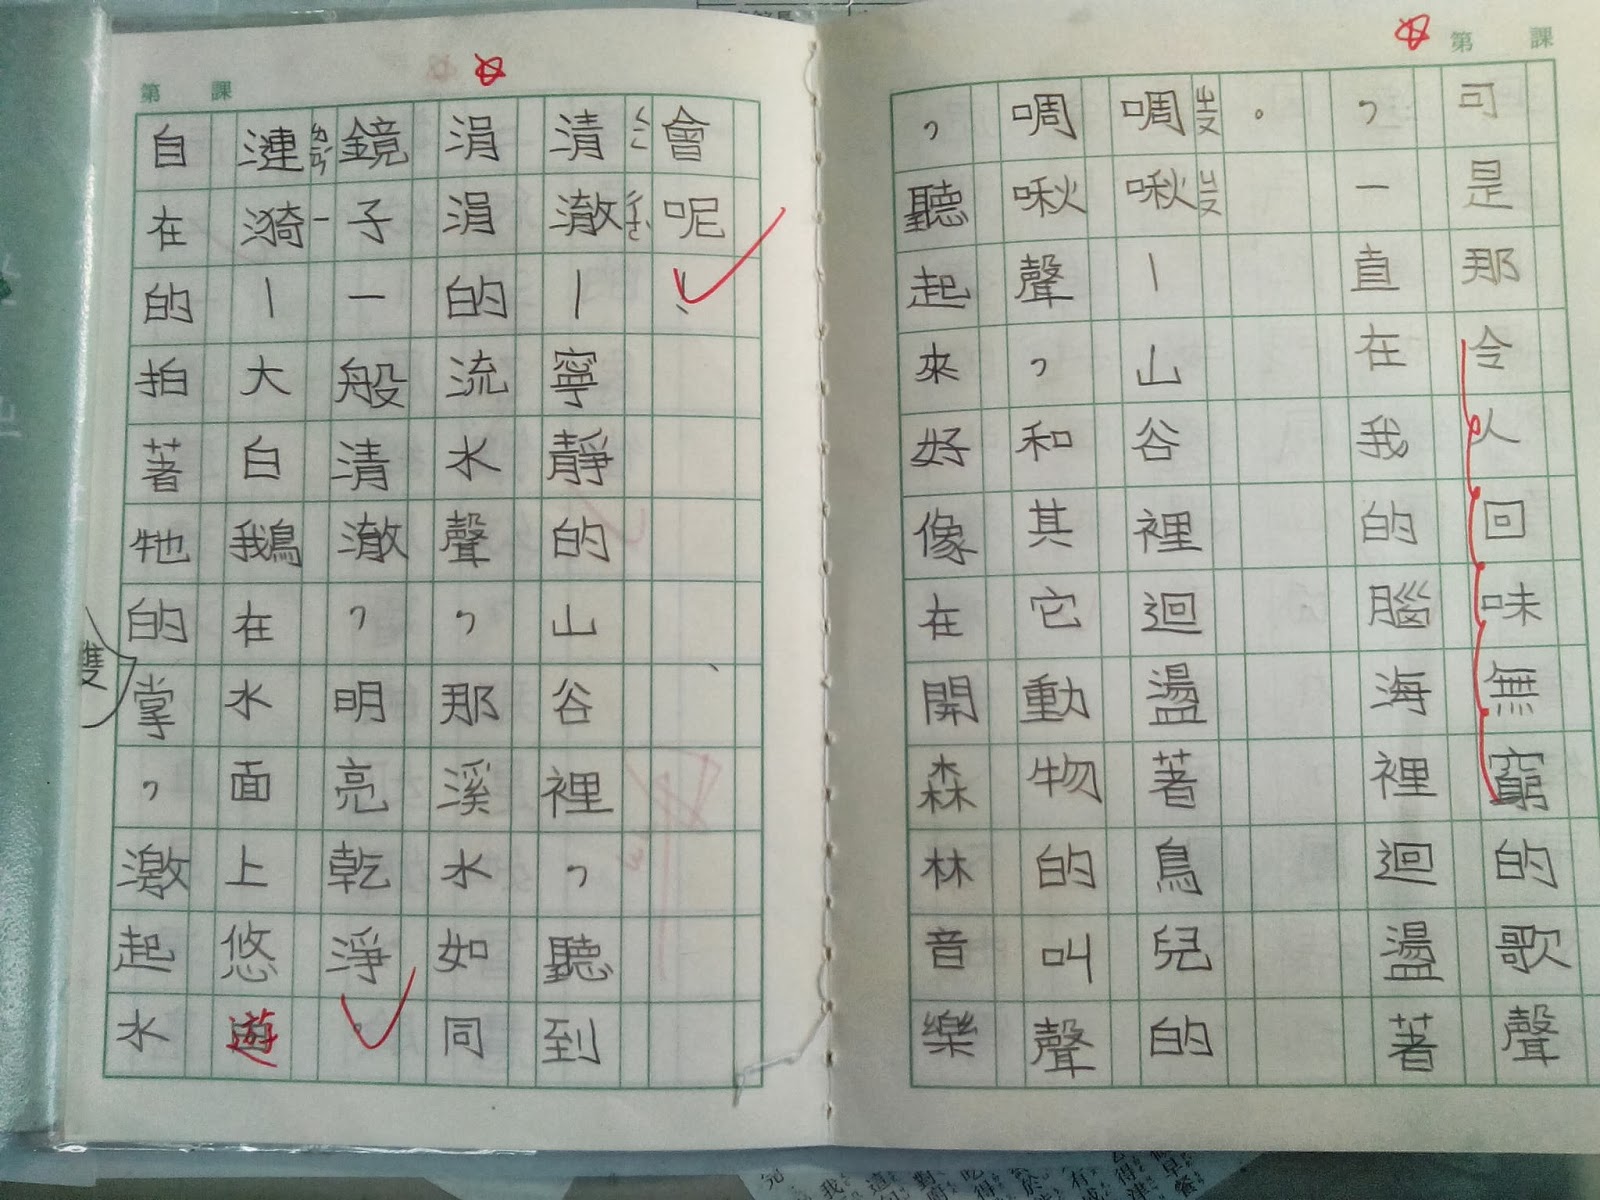 第 課
可是那令人回味無窮的歌聲
，一直在我的腦海裡迴盪著
。
啁ㄓㄡ啾ㄓㄡ—山谷裡迴盪著鳥兒的
啁啾聲，和其它動物的叫聲
，聽起來好像在開森林音樂
第 課
會呢！
清ㄑㄧㄥ澈ㄔㄜˋ—寧靜的山谷裡，聽到
涓涓的流水聲，那溪水如同
鏡子一般清澈，明亮乾淨，
漣ㄌㄧㄢˊ漪ㄧ—大白鵝在水面上悠遊
自在的拍著牠的雙掌，激起水